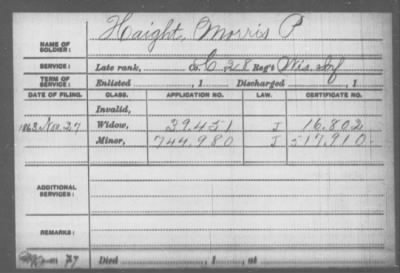 NAME OF SOLDIER: Haight, Morris P
SERVICE: Late rank, Co. C 28 Reg't Wis. Inf
TERM OF SERVICE: Enlisted , 1 Discharged , 1
DATE OF FILING. CLASS. APPLICATION NO. LAW. CERTIFICATE NO.
Invalid,
1863 Nov. 27 Widow, 39.451 J 16.802
Minor, 744.980 J 517.910
ADDITIONAL SERVICES:
REMARKS:
Died , 1 , at